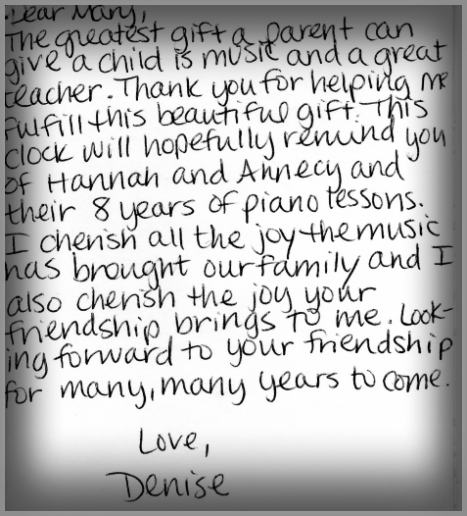 Dear Mary,
The greatest gift a parent can
give a child is music and a great
teacher. Thank you for helping me
fulfill this beautiful gift. This
clock will hopefully remind you
of Hannah and Annecy and
their 8 years of piano lessons.
I cherish all the joy the music
has brought our family and I
also cherish the joy your
friendship brings to me. Look-
ing forward to your friendship
for many, many years to come.
Love,
Denise